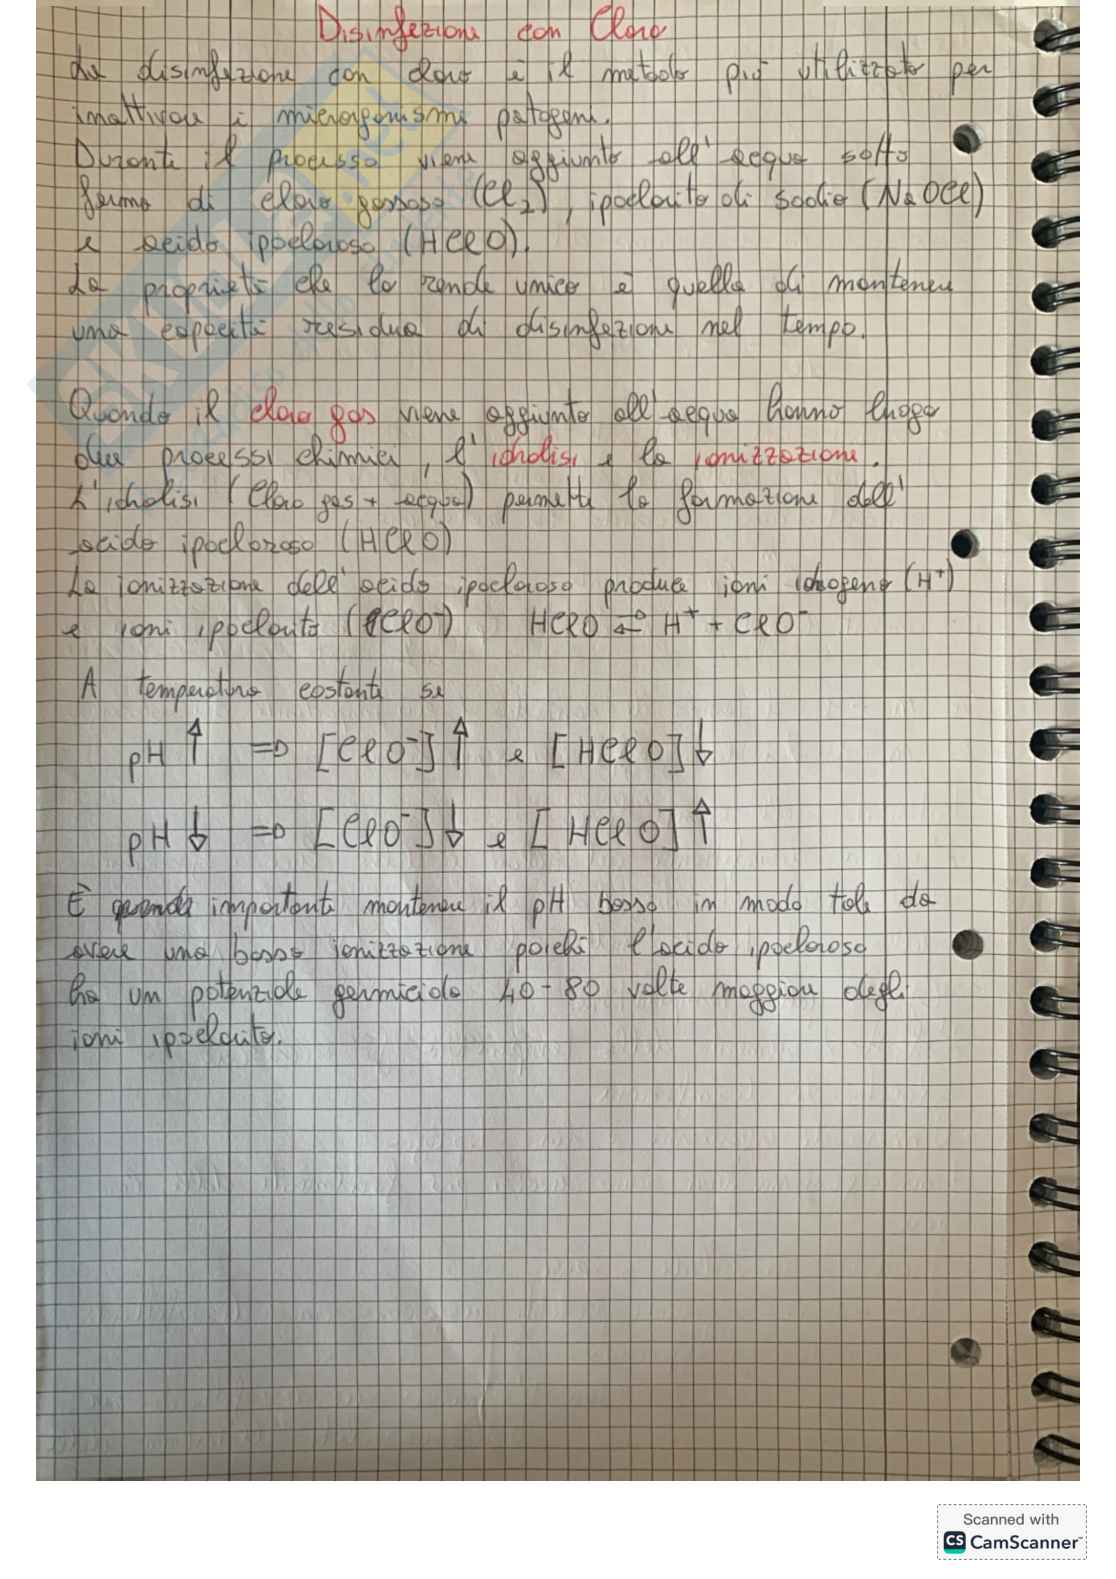 Disinfezione con Cloro
La disinfezione con cloro è il metodo più utilizzato per
inattivare i microrganismi patogeni.
Durante il processo viene aggiunto all'acqua sotto
forma di cloro gassoso (Cl₂), ipoclorito di sodio (NaOCl)
e acido ipocloroso (HClO).
La proprietà che lo rende unico è quella di mantenere
una capacità residua di disinfezione nel tempo.
Quando il cloro gas viene aggiunto all'acqua hanno luogo
due processi chimici, l'idrolisi e la ionizzazione.
L'idrolisi (Cloro gas + acqua) permette la formazione dell'
acido ipocloroso (HClO)
La ionizzazione dell'acido ipocloroso produce ioni idrogeno (H⁺)
e ioni ipoclorito (ClO⁻) HClO ⇌ H⁺ + ClO⁻
A temperatura costante se
pH ↑ => [ClO⁻] ↑ e [HClO] ↓
pH ↓ => [ClO⁻] ↓ e [HClO] ↑
È quindi importante mantenere il pH basso in modo tale da
avere una bassa ionizzazione poiché l'acido ipocloroso
ha un potenziale germicida 40-80 volte maggiore degli
ioni ipoclorito.
Scanned with
CS CamScanner